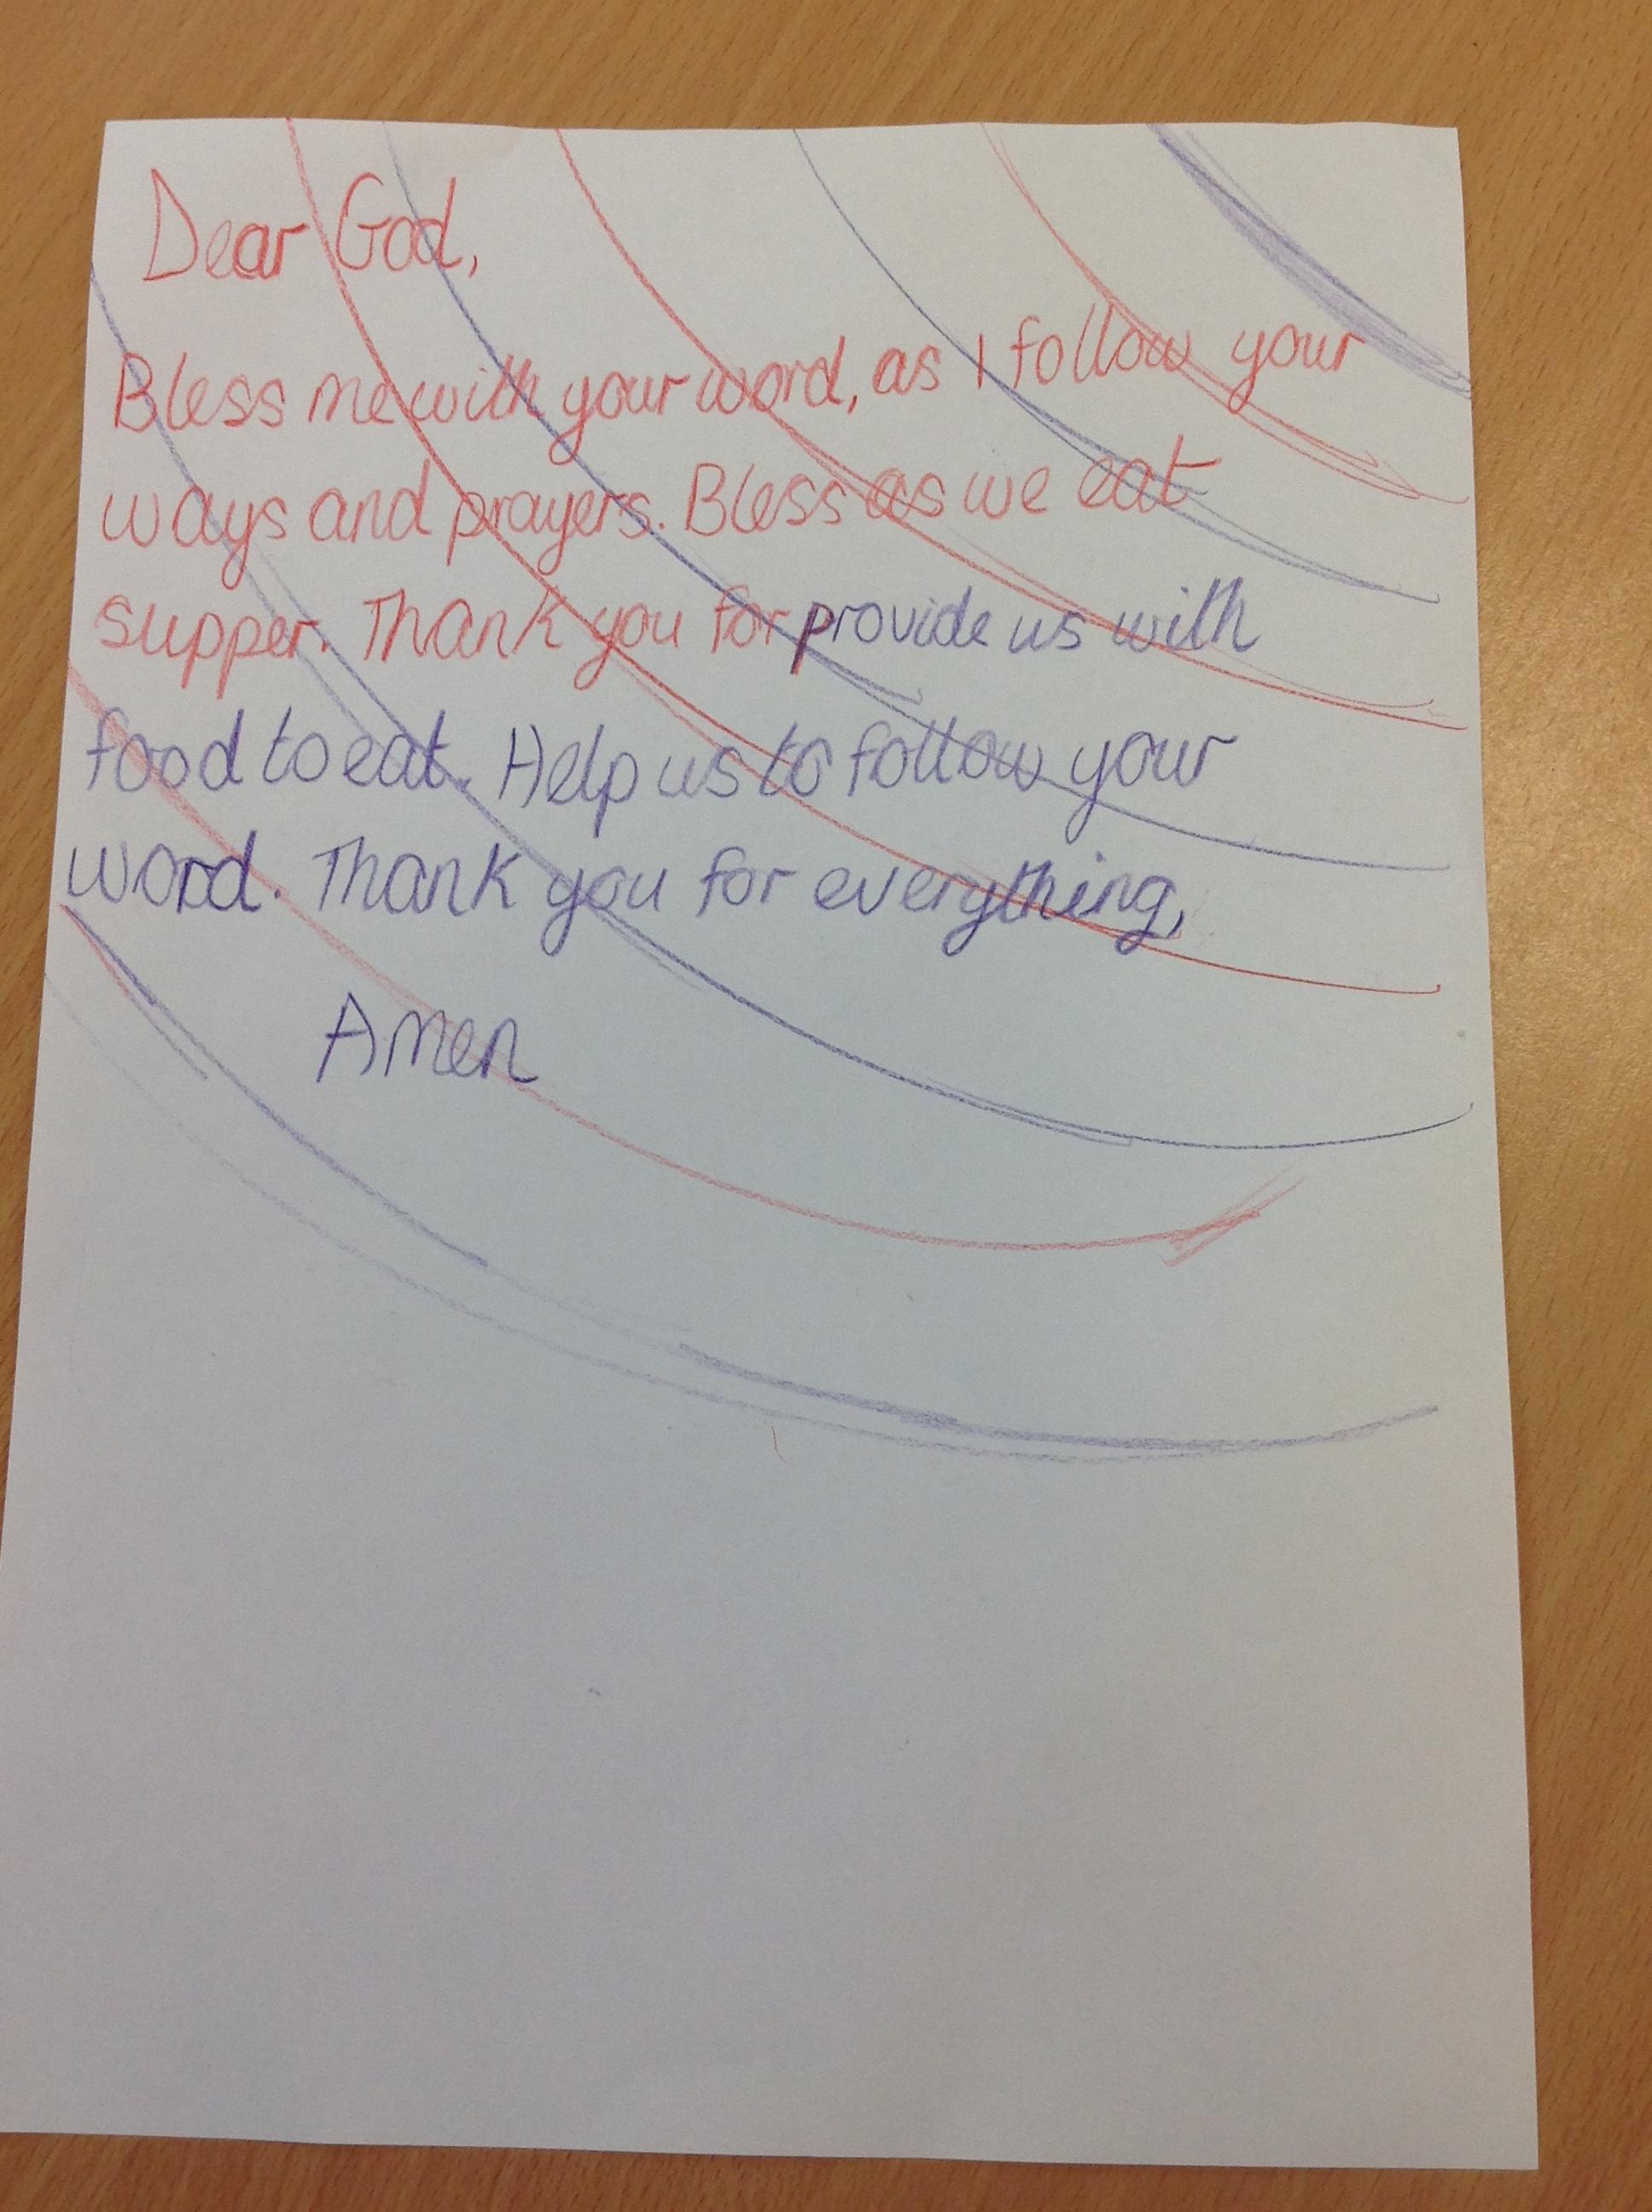 Dear God,
Bless me with your word, as I follow your
ways and prayers. Bless as we eat
supper. Thank you for provide us with
food to eat. Help us to follow your
word. Thank you for everything,
Amen